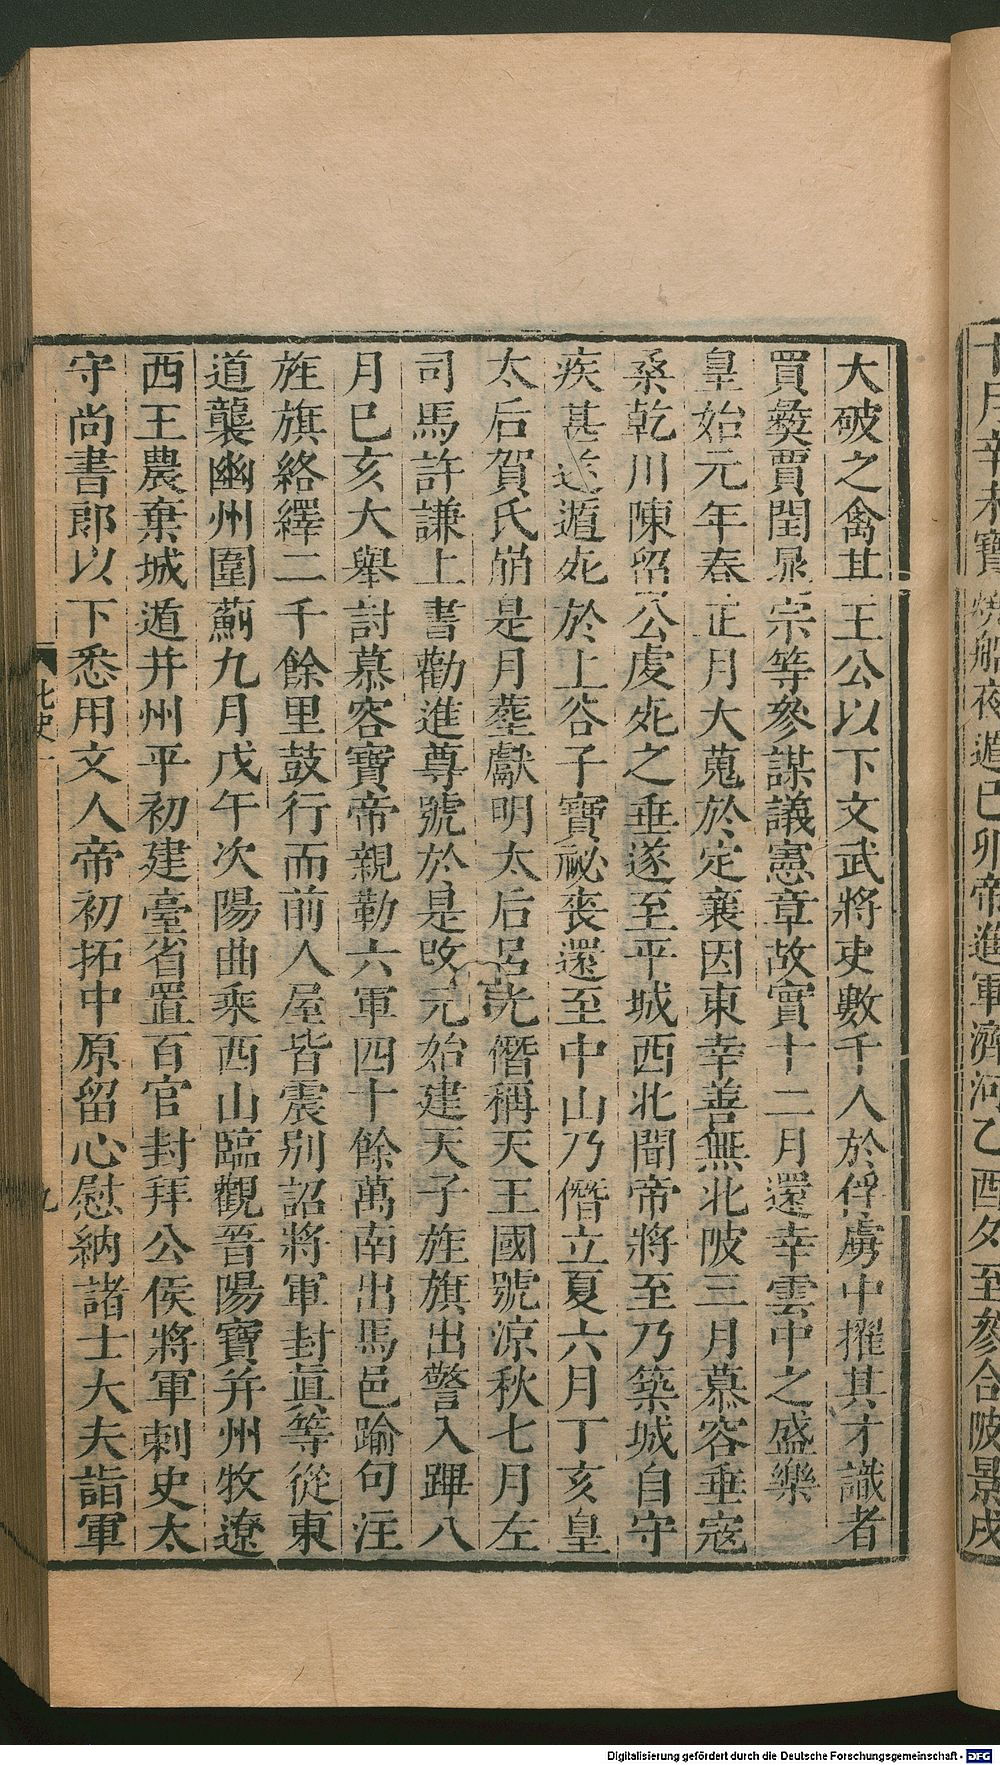 十月辛未寶燒船夜遁己卯帝進軍濟河乙酉夕至參合陂景戌
大破之禽其王公以下文武將吏數千人於俘虜中擢其才識者
賈彝賈閏晁崇等參謀議憲章故實十二月還幸雲中之盛樂
皇始元年春正月大蒐於定襄因東幸善無北陂三月慕容垂寇
桑乾川陳留公虔死之垂遂至平城西北聞帝將至乃築城自守
疾甚遂遁死於上谷子寶祕喪還至中山乃僭立夏六月丁亥皇
太后賀氏崩是月葬獻明太后呂光僭稱天王國號涼秋七月左
司馬許謙上書勸進尊號於是改元始建天子旌旗出警入蹕八
月巳亥大舉討慕容寶帝親勒六軍四十餘萬南出馬邑踰句注
旌旗絡繹二千餘里鼓行而前人屋皆震别詔將軍封眞等從東
道襲幽州圍薊九月戊午次陽曲乘西山臨觀晉陽寶并州牧遼
西王農棄城遁并州平初建臺省置百官封拜公侯將軍刺史太
守尚書郎以下悉用文人帝初拓中原留心慰納諸士大夫詣軍
北史一
九
Digitalisierung gefördert durch die Deutsche Forschungsgemeinschaft - DFG